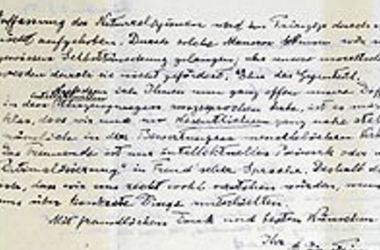 Auffassung der Naturreligionen werden im Prinzip durch
nicht aufgehoben. Durch solche Mauern können wir
gewissen Selbsttäuschung gelangen; aber unsere moralischen
werden durch sie nicht gefördert. Eher das Gegenteil.
Nachdem ich Ihnen nun ganz offen unsere
in den intellektuellen Überzeugungen ausgesprochen habe, ist es mir
klar, dass wir uns im Wesentlichen ganz nahe
nämlich in den Bewertungen menschlichen
Trennende ist nur intellektuelles Beiwerk oder
"Rationalisierung" in Freud'scher Sprache. Deshalb
dass wir uns recht wohl verstehen würden, wenn
uns über konkrete Dinge unterhielten.
Mit freundlichem Dank und besten Wünschen
Ihr